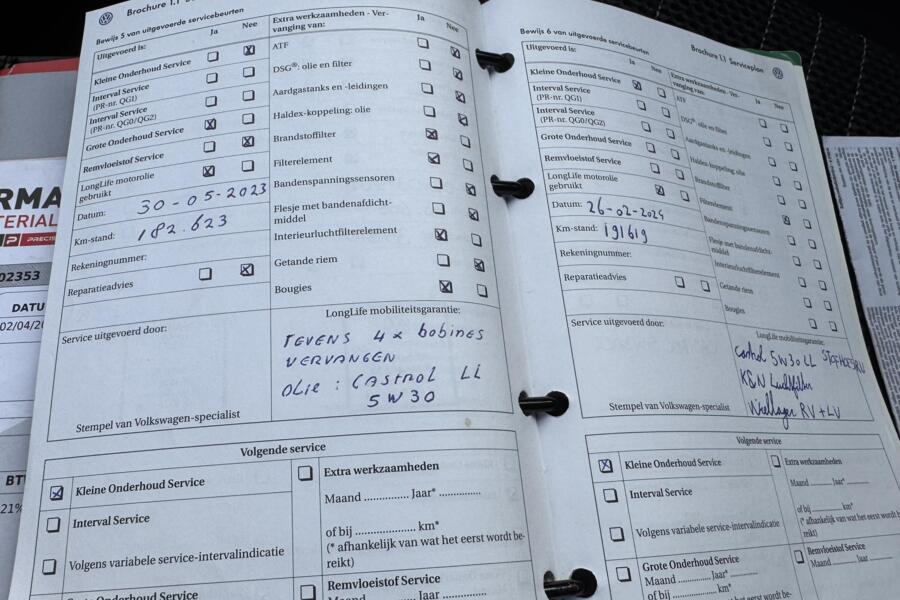 Brochure 1.1
Bewijs 5 van uitgevoerde servicebeurten
Uitgevoerd is:
Ja Nee
Kleine Onderhoud Service
Interval Service
(PR-nr. QG1)
Interval Service
(PR-nr. QG0/QG2)
Grote Onderhoud Service
Remvloeistof Service
LongLife motorolie
gebruikt
Datum: 30-05-2023
Km-stand: 182.623
Rekeningnummer:
Reparatieadvies
Service uitgevoerd door:
Stempel van Volkswagen-specialist
Extra werkzaamheden - Ver-
vanging van:
Ja Nee
ATF
DSG®: olie en filter
Aardgastanks en -leidingen
Haldex-koppeling: olie
Brandstoffilter
Filterelement
Bandenspanningssensoren
Flesje met bandenafdicht-
middel
Interieurluchtfilterelement
Getande riem
Bougies
LongLife mobiliteitsgarantie:
TEVENS 4x bobines
VERVANGEN
OLIE: CASTROL LL
5W30
Volgende service
Kleine Onderhoud Service
Interval Service
Volgens variabele service-intervalindicatie
Grote Onderhoud Service
Extra werkzaamheden
Maand ............... Jaar* ...............
of bij .................... km*
(* afhankelijk van wat het eerst wordt be-
reikt)
Remvloeistof Service
Maand Jaar*
Brochure 1.1 Serviceplan
Bewijs 6 van uitgevoerde servicebeurten
Uitgevoerd is:
Ja Nee
Kleine Onderhoud Service
Interval Service
(PR-nr. QG1)
Interval Service
(PR-nr. QG0/QG2)
Grote Onderhoud Service
Remvloeistof Service
LongLife motorolie
gebruikt
Datum: 26-02-2024
Km-stand: 191619
Rekeningnummer:
Reparatieadvies
Service uitgevoerd door:
Stempel van Volkswagen-specialist
Extra werkzaamheden - Ver-
vanging van:
Ja Nee
ATF
DSG®: olie en filter
Aardgastanks en -leidingen
Haldex-koppeling: olie
Brandstoffilter
Filterelement
Bandenspanningssensoren
Flesje met bandenafdicht-
middel
Interieurluchtfilterelement
Getande riem
Bougies
LongLife mobiliteitsgarantie:
Castrol 5W30 LL
K&N Luchtfilter
Wiellager RV + LV
Volgende service
Kleine Onderhoud Service
Interval Service
Volgens variabele service-intervalindicatie
Grote Onderhoud Service
Maand ............... Jaar* ...............
of bij .................... km*
Extra werkzaamheden
Maand ............ Jaar* ............
of bij .................... km*
(* afhankelijk van wat het eerst wordt be-
reikt)
Remvloeistof Service
Maand ............ Jaar* ............
RMA
TERIAL
PRECIS
02353
DATU
02/04/20
BT
21%